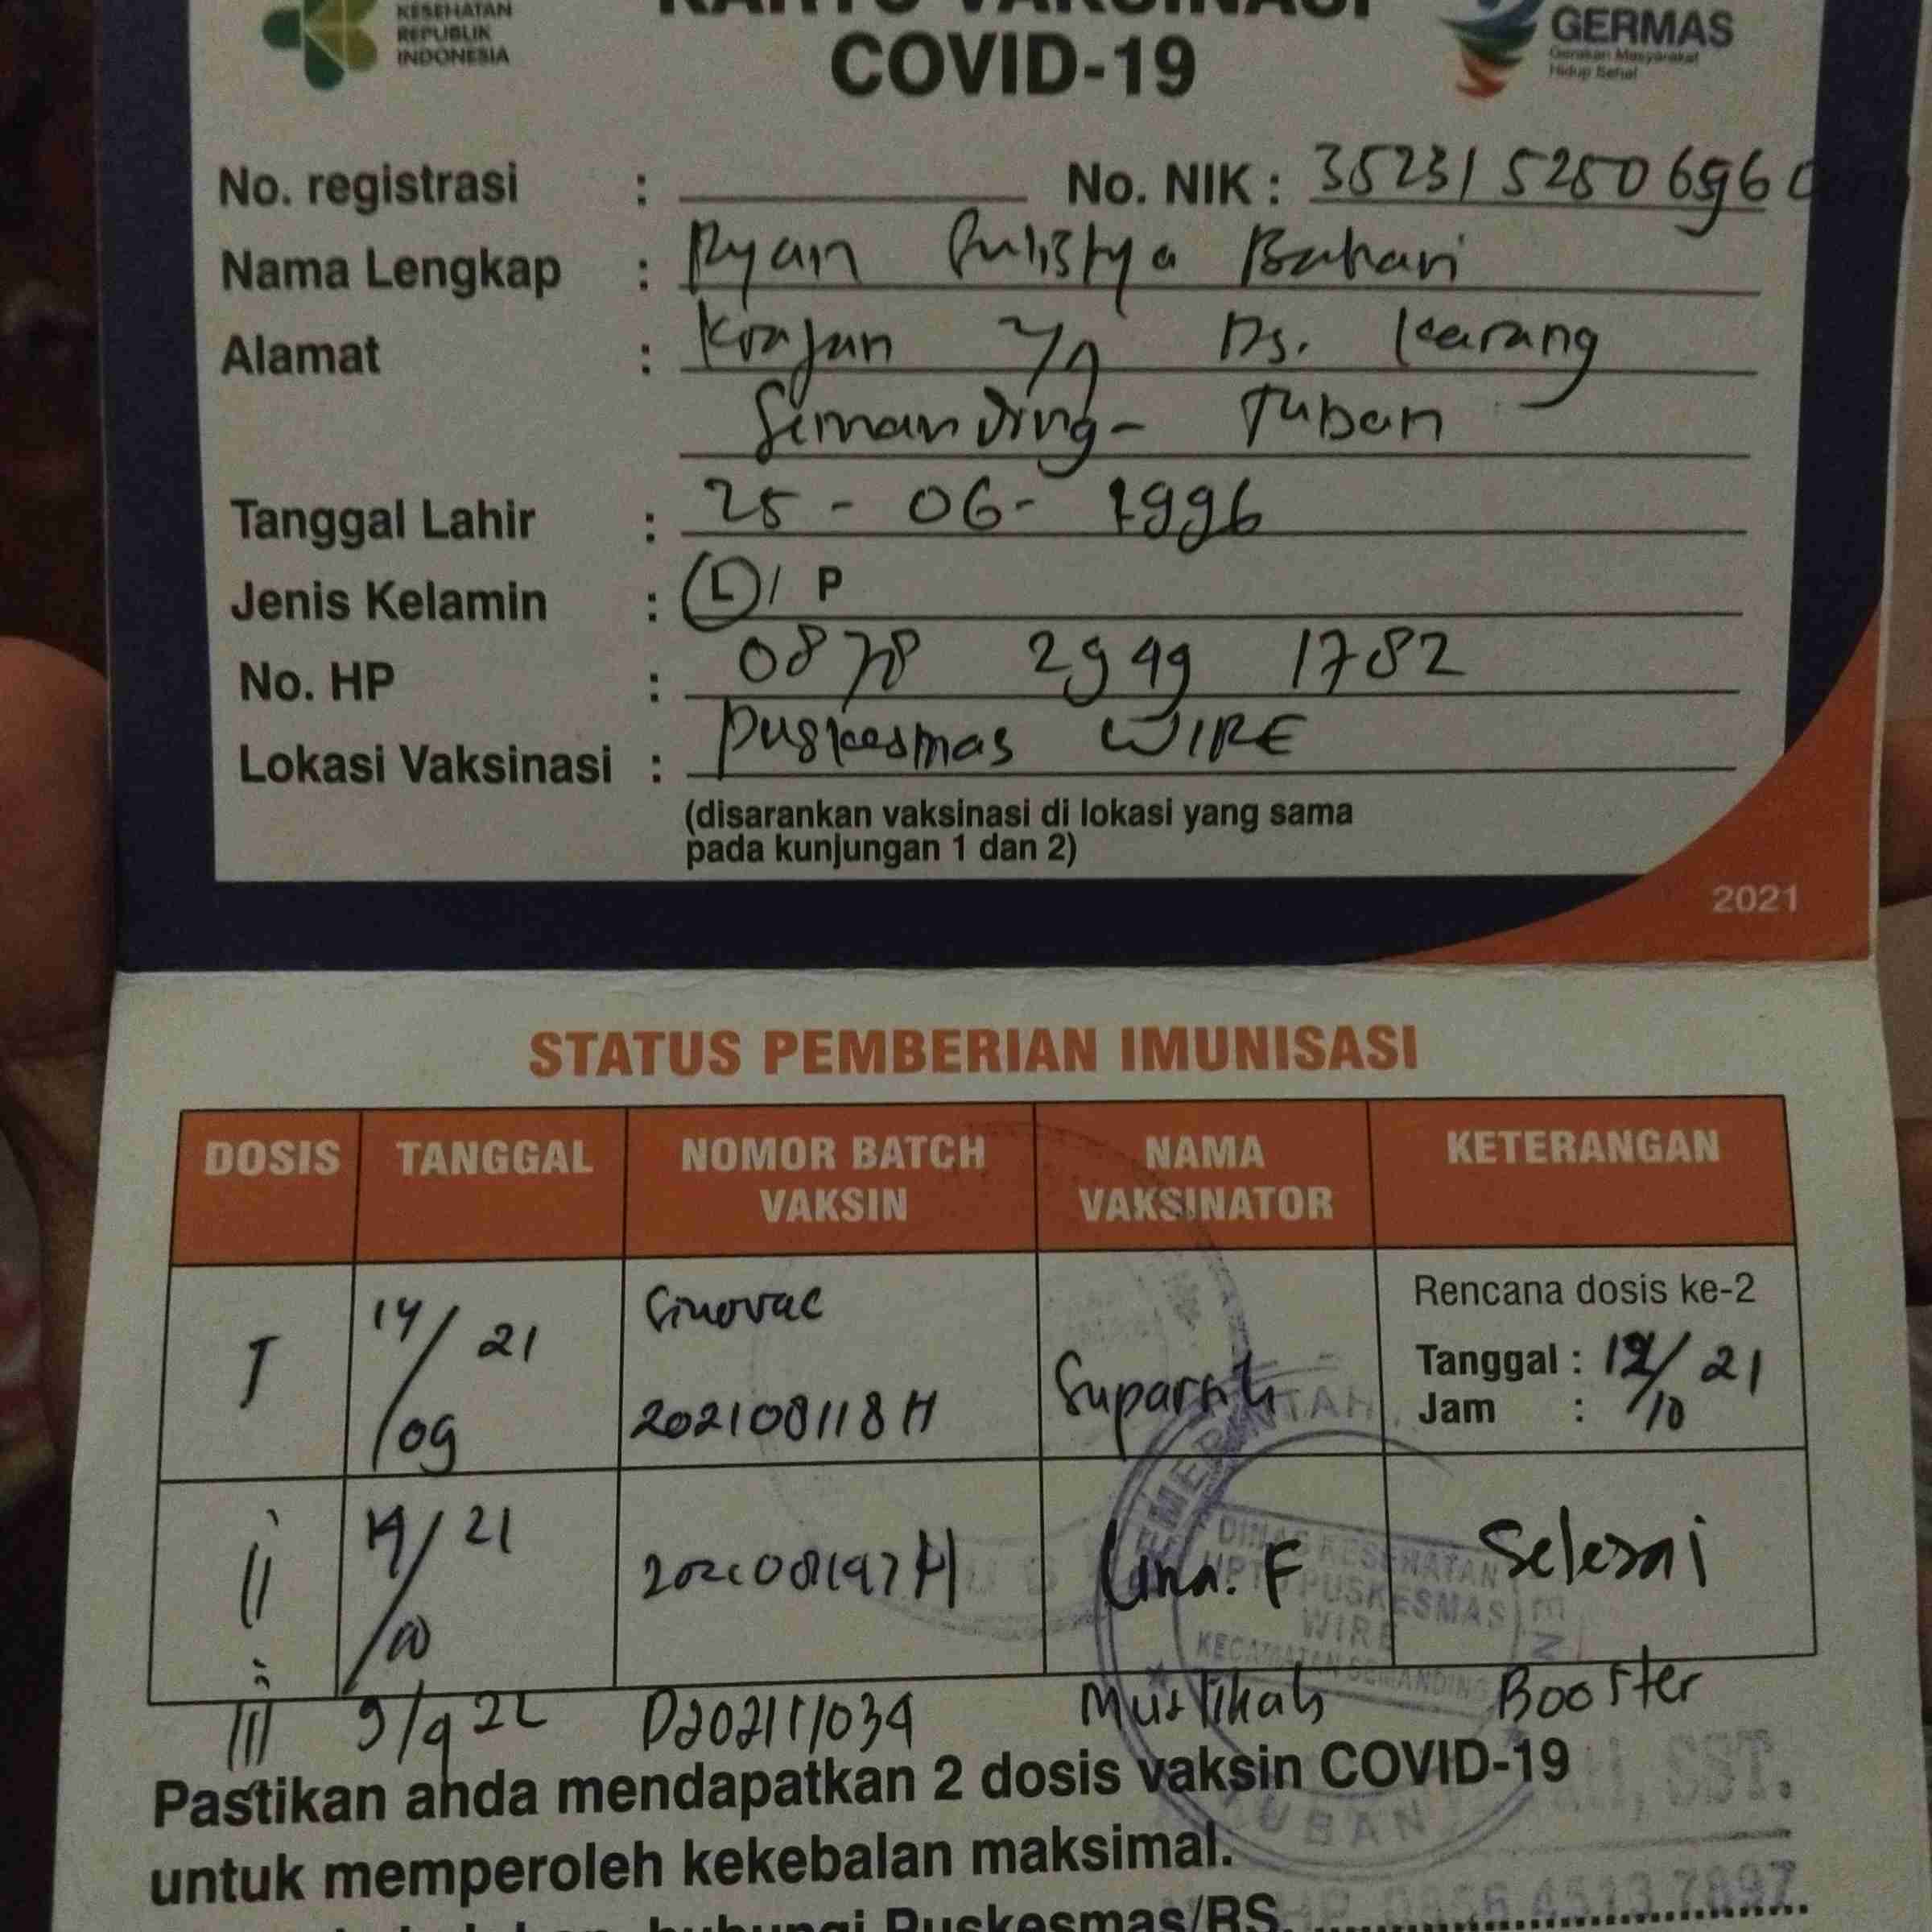 KESEHATAN
REPUBLIK
INDONESIA
KARTU VAKSINASI
COVID-19
GERMAS
Gerakan Masyarakat
Hidup Sehat
No. registrasi : No. NIK : 352315250696
Nama Lengkap : Ryan Sulistya Bahari
Alamat : Krajan Ds. Karang
Semanding - Tuban
Tanggal Lahir : 25 - 06 - 1996
Jenis Kelamin : L / P
No. HP : 0878 2949 1782
Lokasi Vaksinasi : Puskesmas WIRE
(disarankan vaksinasi di lokasi yang sama
pada kunjungan 1 dan 2)
2021
STATUS PEMBERIAN IMUNISASI
DOSIS TANGGAL NOMOR BATCH VAKSIN NAMA VAKSINATOR KETERANGAN
I 14/09 21 Sinovac 202108118H Suparsih Rencana dosis ke-2
Tanggal : 12/10 21
Jam :
II 14/10 21 H Lina. F Selesai
III 9/9 22 D202111034 Mustikah Booster
PEMERINTAH
DINAS KESEHATAN
UPTD PUSKESMAS
WIRE
KECAMATAN SEMANDING
TUBAN
Pastikan anda mendapatkan 2 dosis vaksin COVID-19
untuk memperoleh kekebalan maksimal.
hubungi Puskesmas/RS.
SST.
HP. 0856 4513 7897